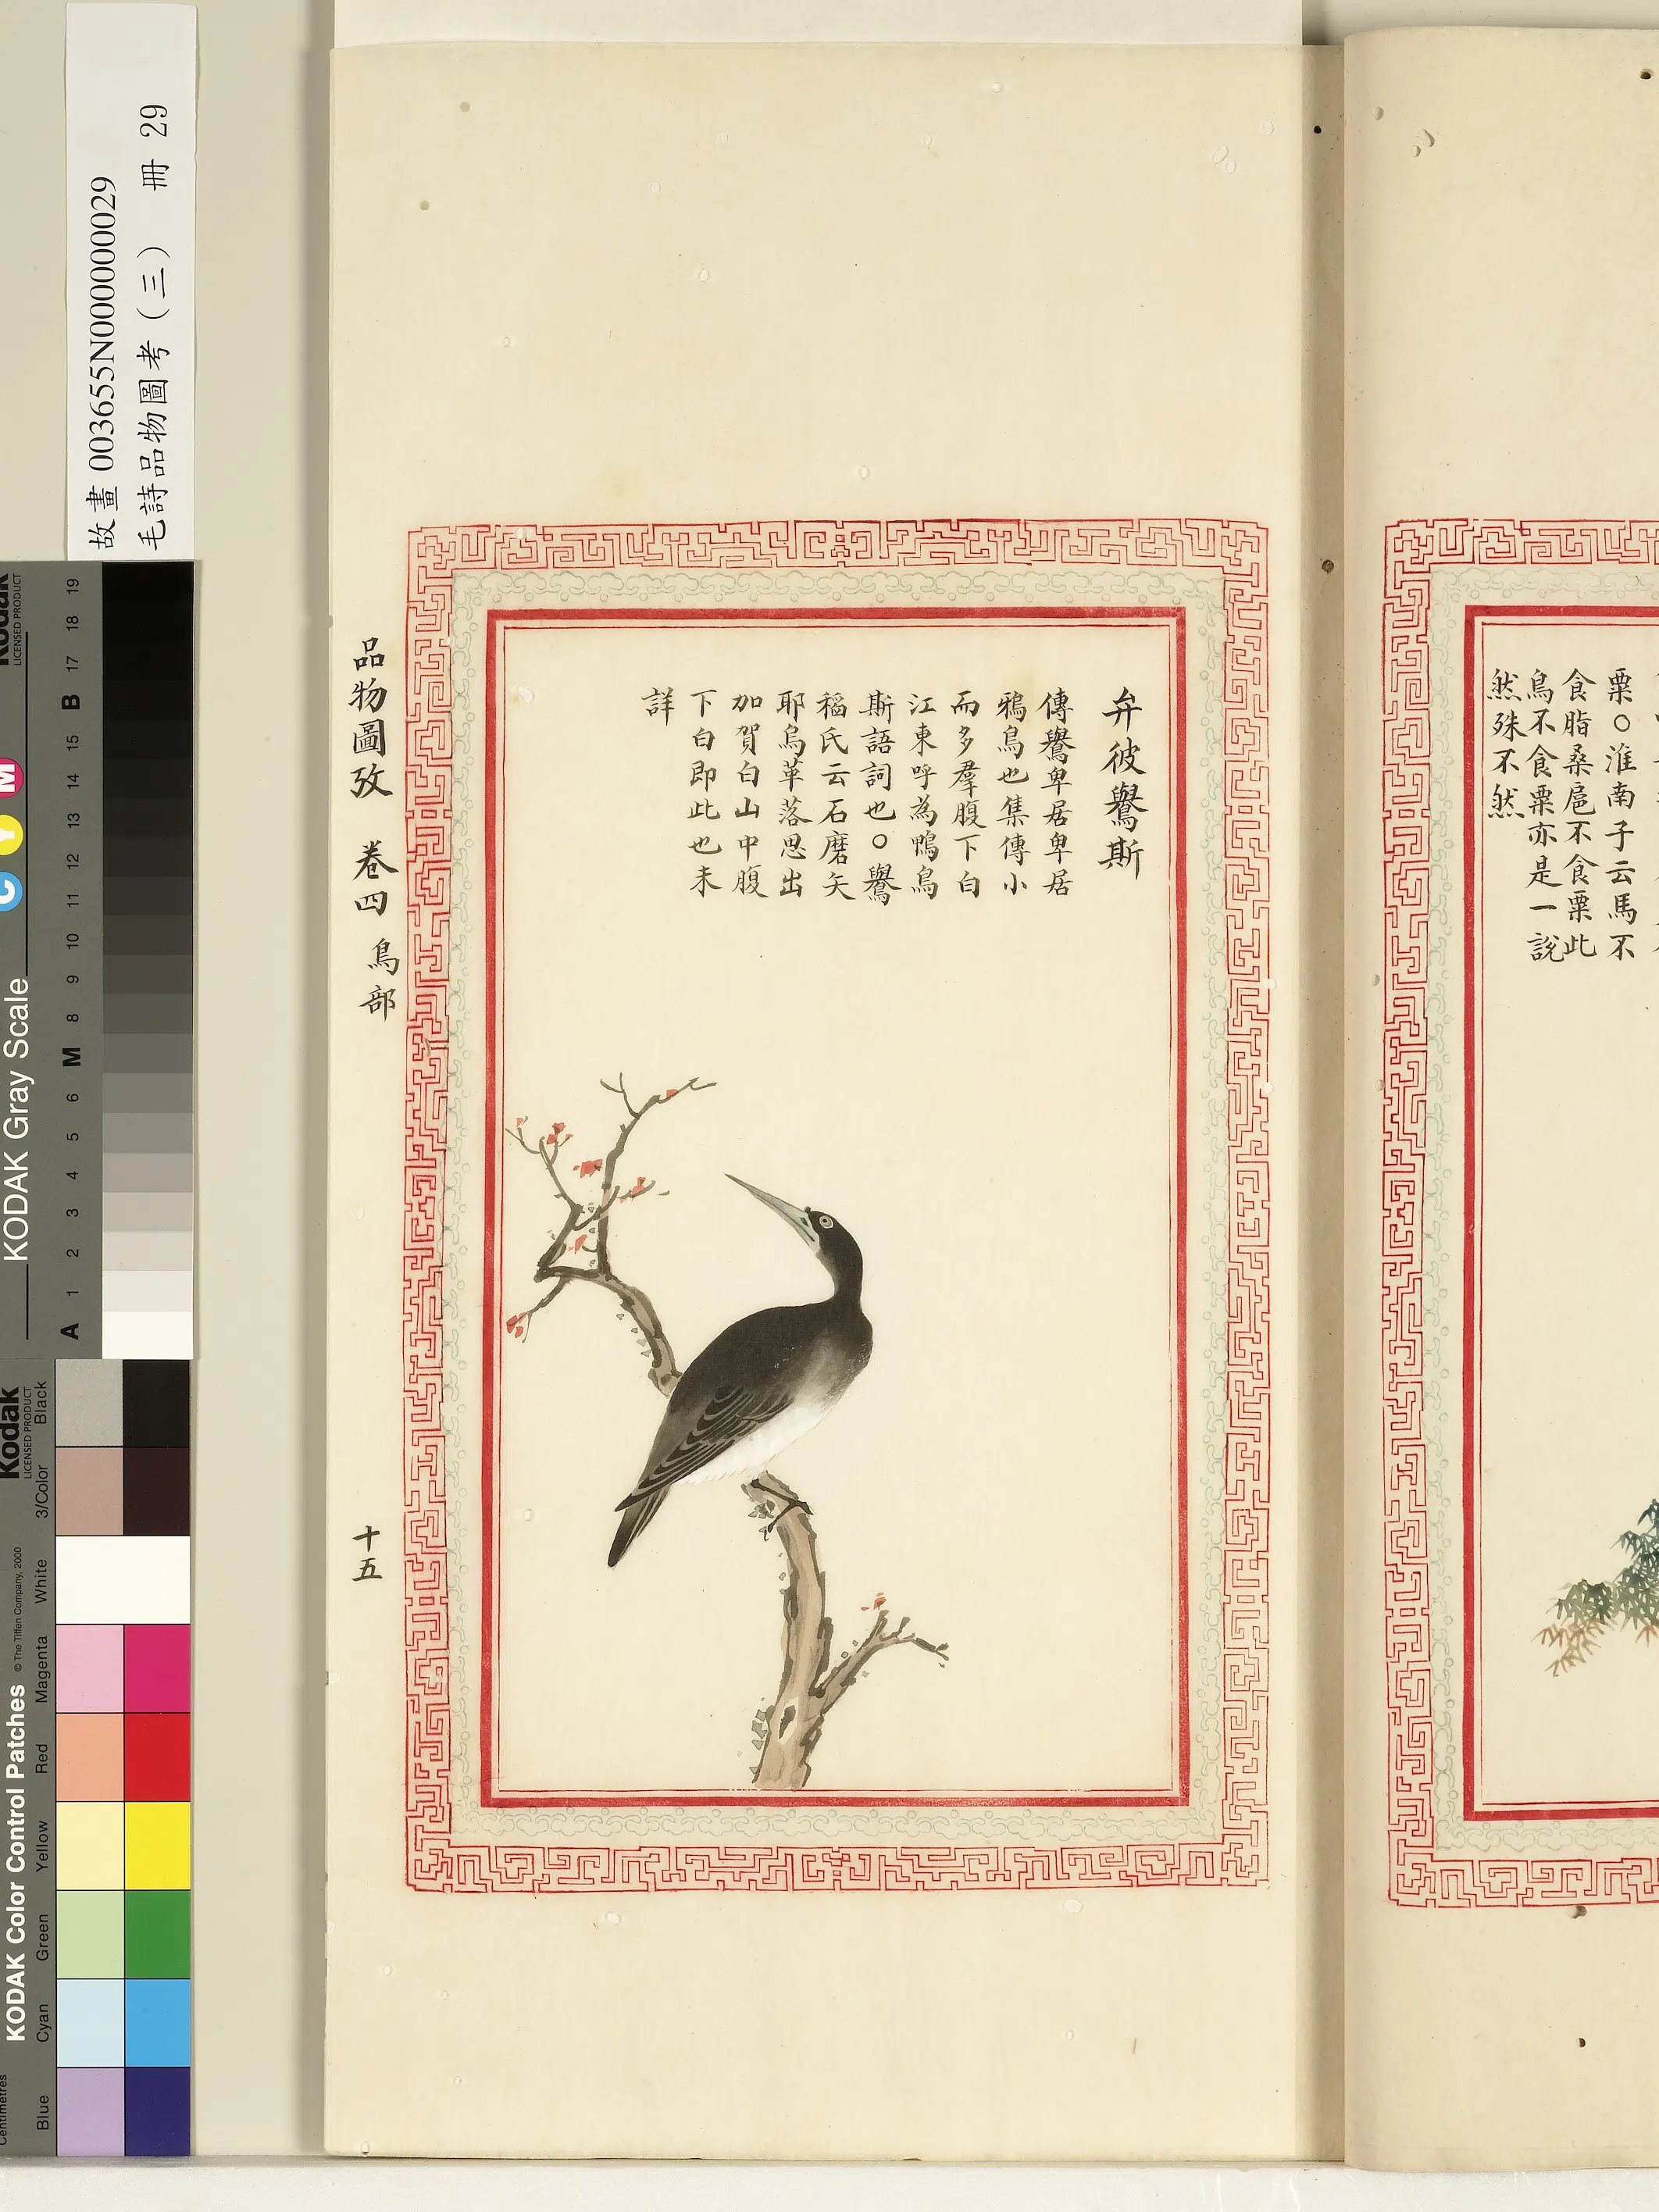 故畫 003655N000000029
毛詩品物圖考（三） 冊 29
弁彼鸒斯
傳鸒卑居卑居
鴉烏也集傳小
而多羣腹下白
江東呼為鴨烏
斯語詞也○鸒
稻氏云石磨矢
耶烏革落思出
加賀白山中腹
下白即此也未
詳
品物圖攷 卷四 鳥部
十五
粟○淮南子云馬不
食脂桑扈不食粟此
鳥不食粟亦是一說
然殊不然
Kodak
LICENSED PRODUCT
KODAK Gray Scale
C Y M
A 1 2 3 4 5 6 M 8 9 10 11 12 13 14 15 B 17 18 19
Kodak
LICENSED PRODUCT
KODAK Color Control Patches
© The Tiffen Company, 2000
Blue Cyan Green Yellow Red Magenta White 3/Color Black
Centimetres